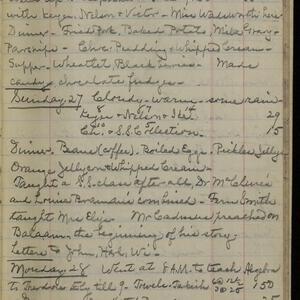 with Keyes. Nelson & Victor - Miss Wadsworth here
Dinner - Fried Pork, Baked Potato, Milk Gravy
Parsnips - Choc. Pudding & Whipped Cream -
Supper - Wheatlet Made
candy chocolate fudge -
Sunday 27 Cloudy - warm - some rain
Keyes & Nelson & 29
Ch. & S.S. Collection 15
Dinner. Beans (coffee) Boiled Eggs. Pickles Jelly
Orange Jelly & Whipped Cream -
Taught a S.S. class after all, Dr McClure's
and Louise combined - Fern Smith
taught Mrs Mr Cadmus preached on
Balaam - the beginning of his story
Letters to John,
Monday 28 Went at 8 A.M. to teach Algebra
to Theodore till 9 - Towels. 1 50